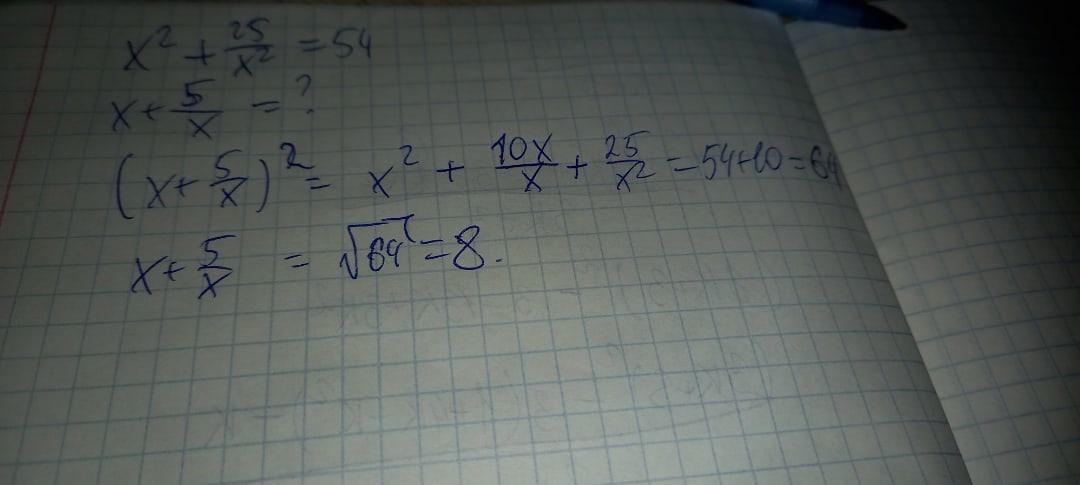 x² + 25/x² = 54
x + 5/x = ?
(x + 5/x)² = x² + 10x/x + 25/x² = 54+10 = 64
x + 5/x = √64 = 8.